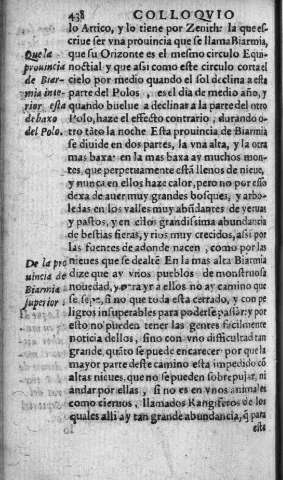 438 COLLOQVIO
lo Artico, y lo tiene por Zenith: la que es-
criue ser vna prouincia que se llama Biarmia,
que su Orizonte es el mesmo circulo Equi-
noctial, y que assi como este circulo corta el
cielo por medio quando el sol declina a esta
parte del Polos, es el dia de medio año, y
quando buelue a declinar a la parte del otro
Polo, haze el effecto contrario, durando o-
tro tãto la noche. Esta prouincia de Biarmia
se diuide en dos partes, la vna alta, y la otra
mas baxa: en la mas baxa ay muchos mon-
tes, que perpetuamente estã llenos de nieue,
y nunca en ellos haze calor, pero no por esso
dexa de auer muy grandes bosques, y arbo-
ledas en los valles muy abũdantes de yeruas
y pastos, y en ellos grandissima abundancia
de bestias fieras, y rios muy crecidos, assi por
las fuentes de adonde nacen, como por las
nieues que se dealtẽ En la mas alta Biarmia
dize que ay vnos pueblos de monstruosa
nouedad, y para yr a ellos no ay camino que
se sepa, si no que toda esta cerrado, y con pe
ligros insuperables para poderse passar: y por
esto no pueden tener las gentes facilmente
noticia dellos, sino con vno difficultad tan
grande, quãto se puede encarecer por que la
mayor parte deste camino esta impedido cõ
altas nieues, que no se pueden sobrepujar, ni
andar por ellas, si no es en vnos animales
como cieruos, llamados Rangiferos de los
quales alli ay tan grande abundancia, q̃ para
esta
Que la
prouincia
de Biar-
mia inte-
rior esta
debaxo
del Polo.
De la pro
uincia de
Biarmia
superior.